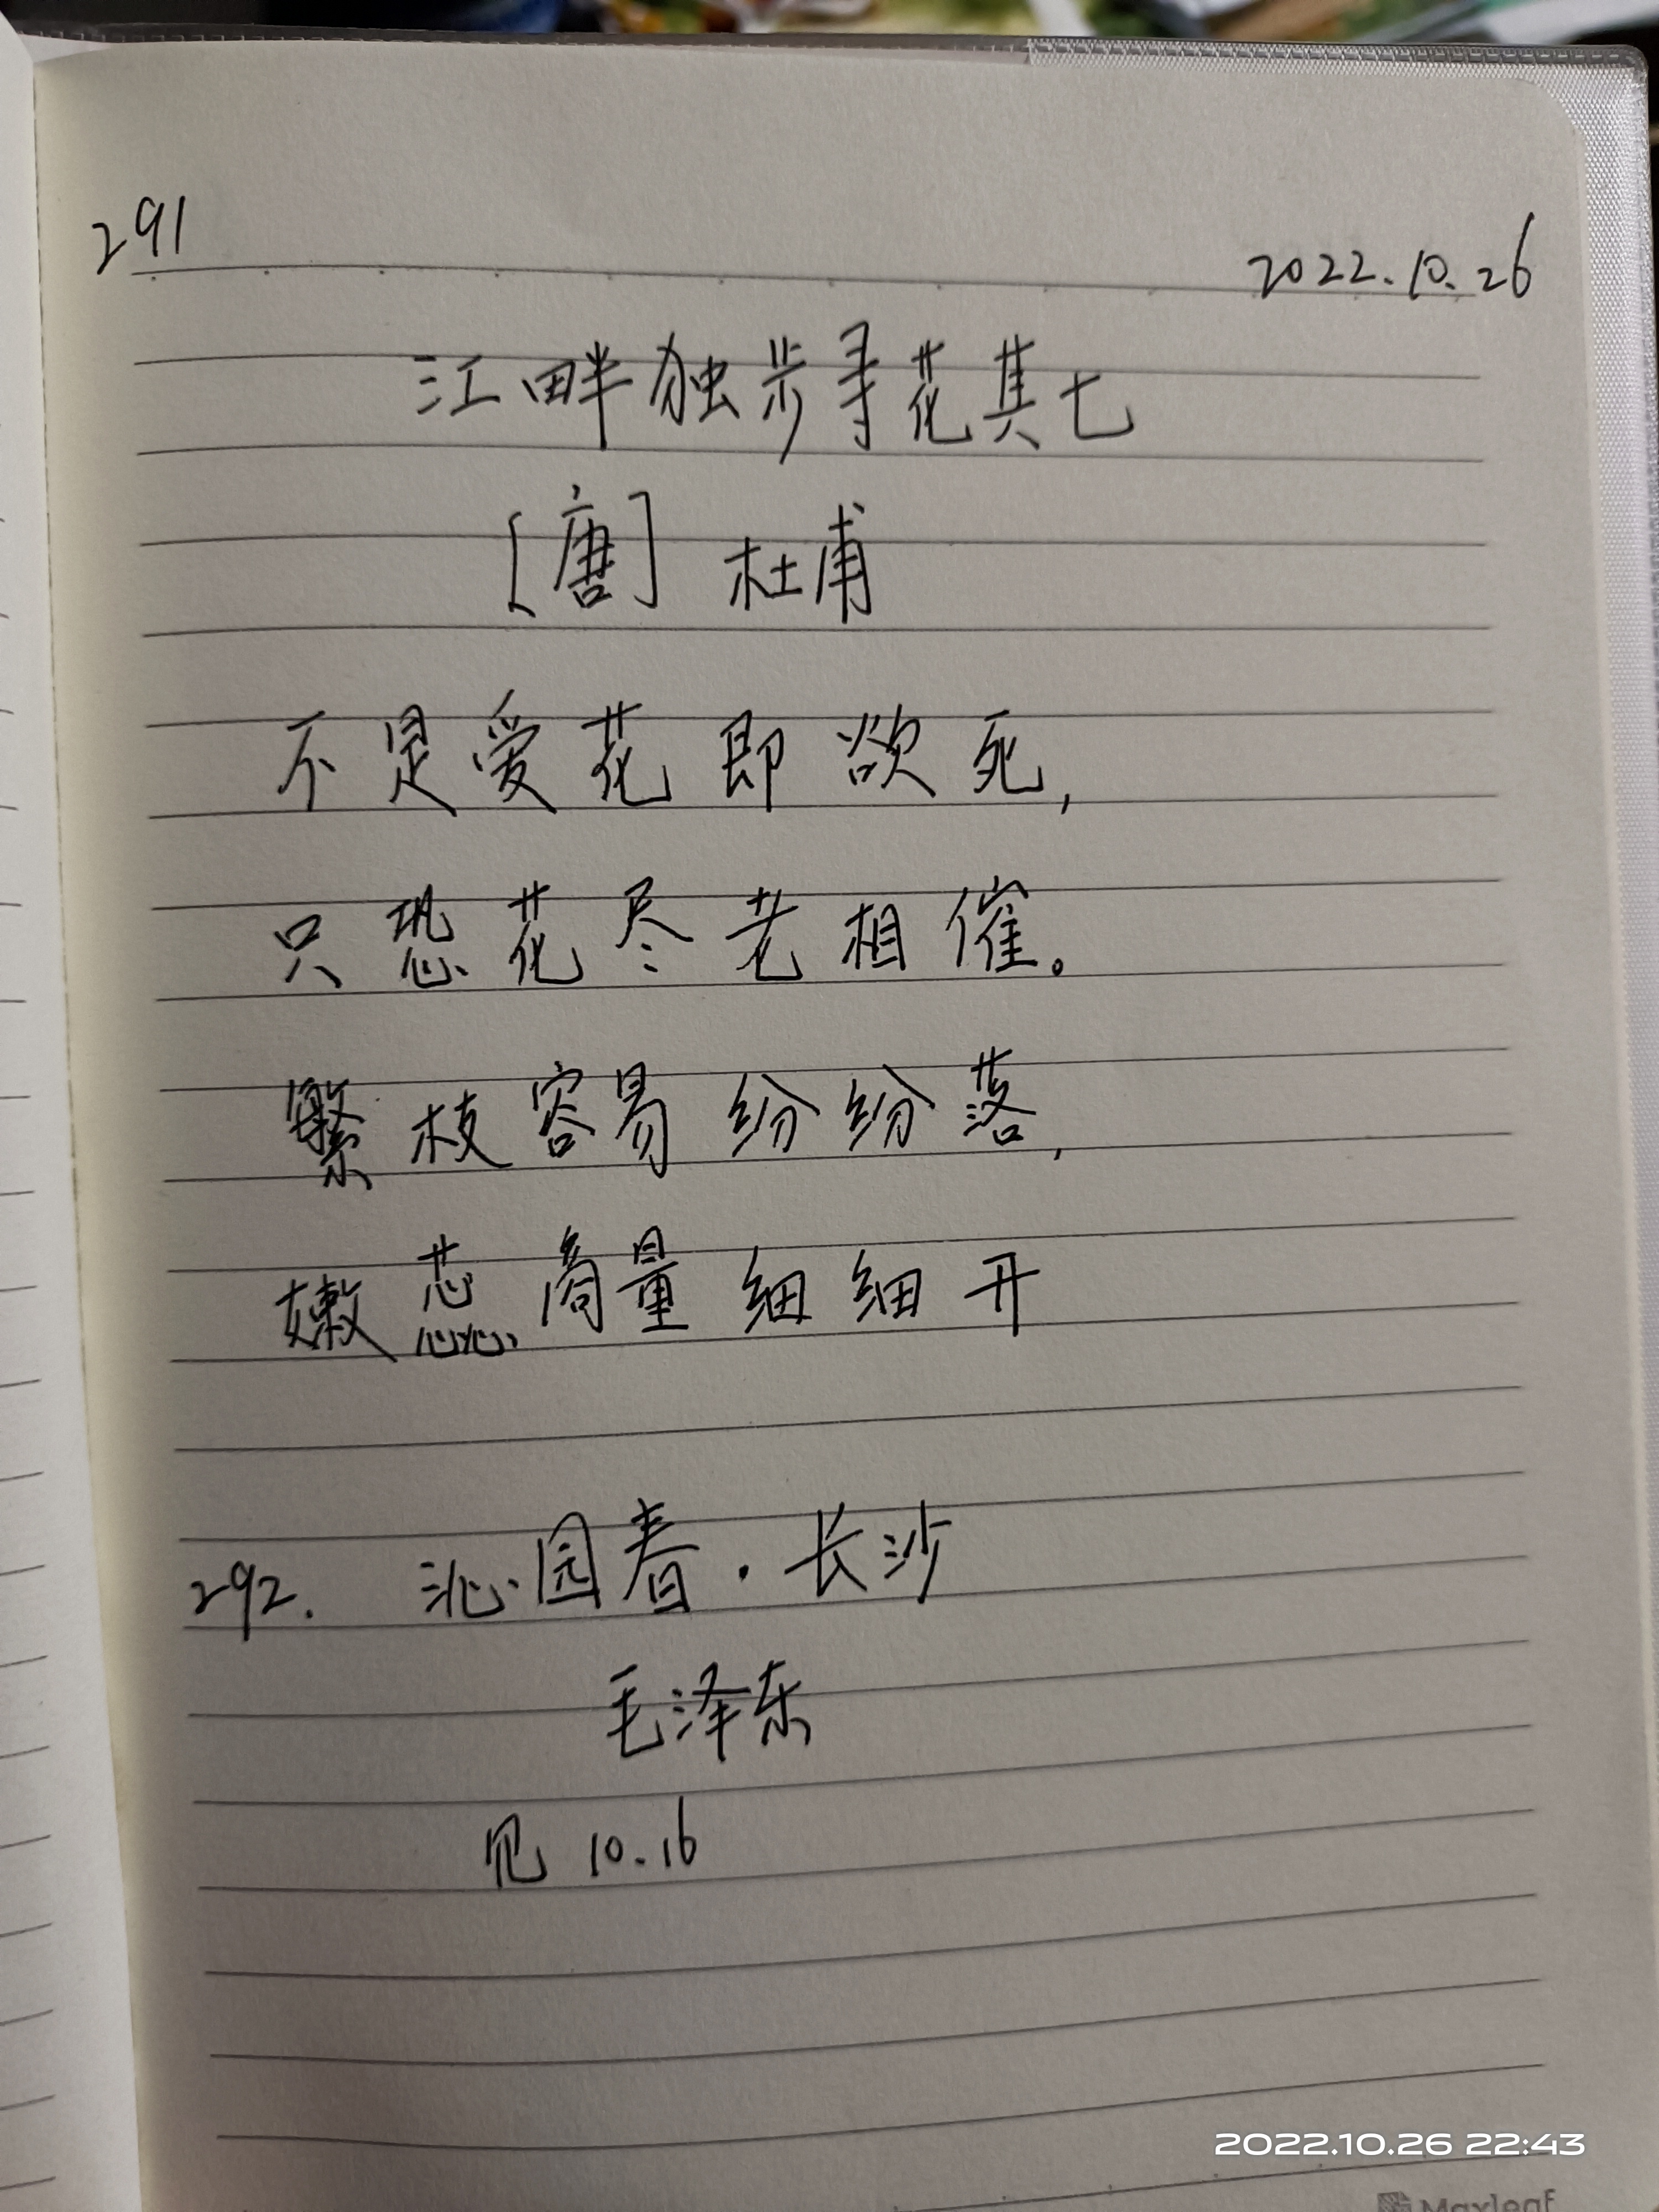 291
2022.10.26
江畔独步寻花其七
[唐] 杜甫
不是爱花即欲死,
只恐花尽老相催。
繁枝容易纷纷落,
嫩蕊商量细细开
292. 沁园春·长沙
毛泽东
见 10.16
2022.10.26 22:43
Maxleaf